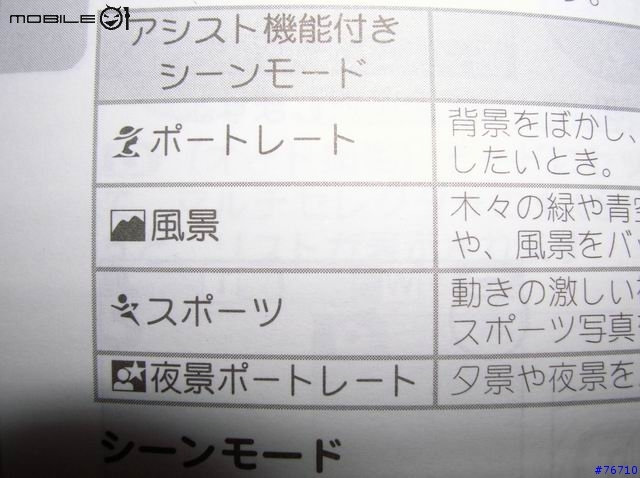 MOBILE01
アシスト機能付き
シーンモード
ポートレート
背景をぼかし、
したいとき。
風景
木々の緑や青
や、風景をバ
スポーツ
動きの激しい
スポーツ写真
夜景ポートレート
夕景や夜景を
シーンモード
#76710